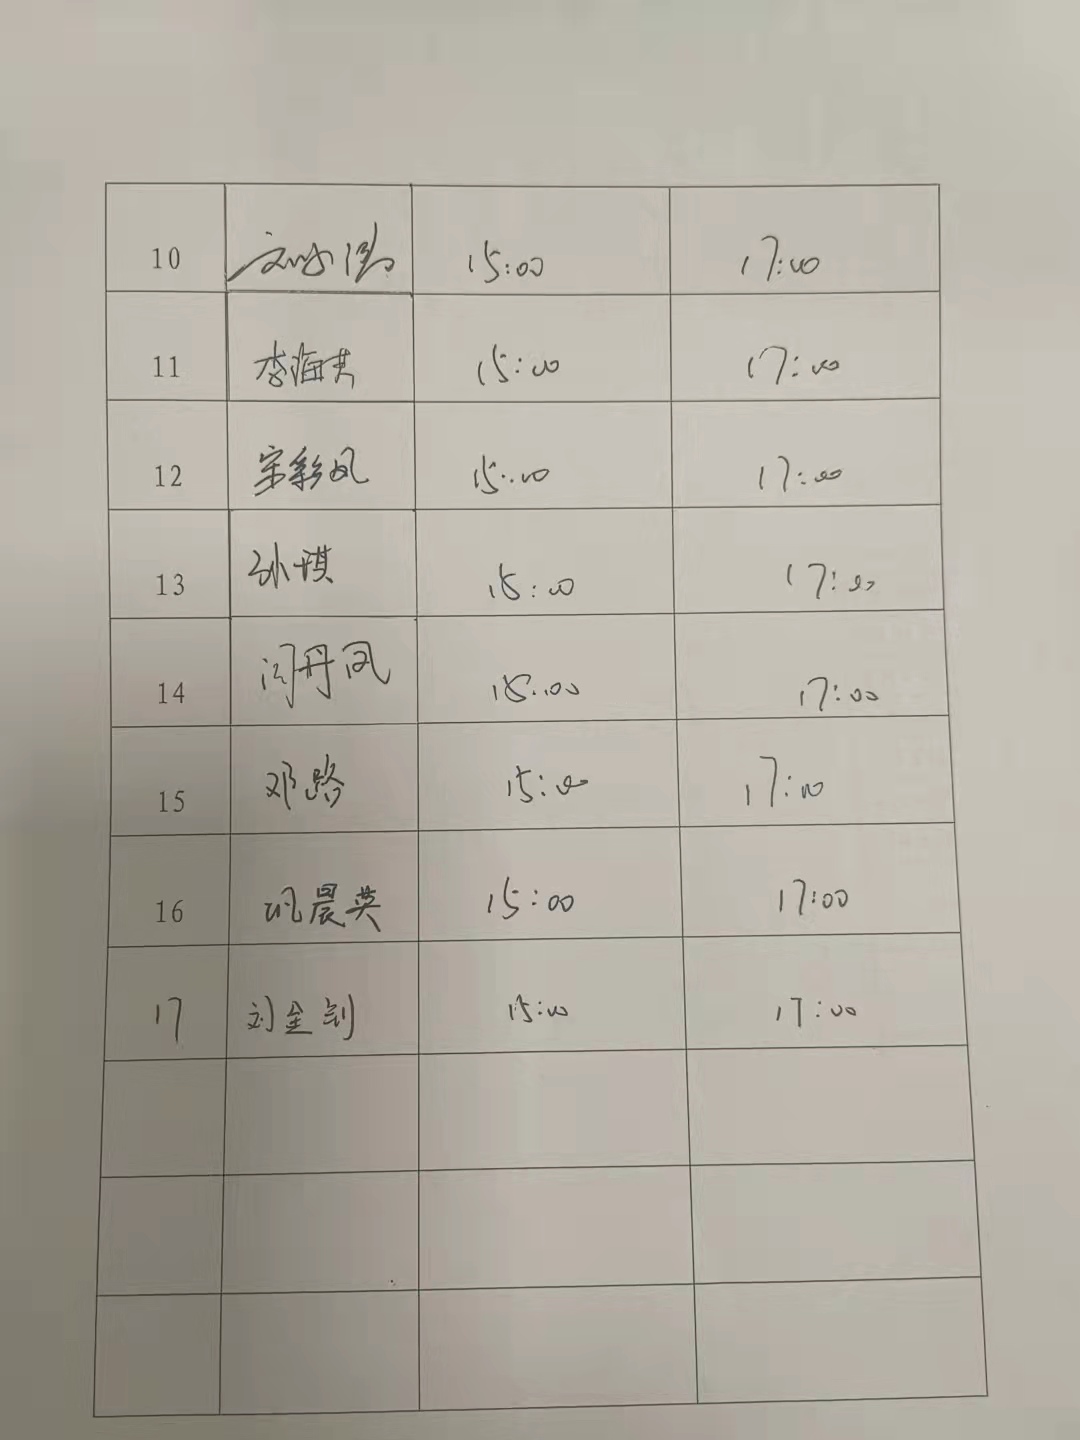 10 15:00 17:00
11 李海燕 15:00 17:00
12 宋彩凤 15:00 17:00
13 孙琪 15:00 17:00
14 闫丹凤 15:00 17:00
15 邓路 15:00 17:00
16 巩晨英 15:00 17:00
17 刘金钊 15:00 17:00